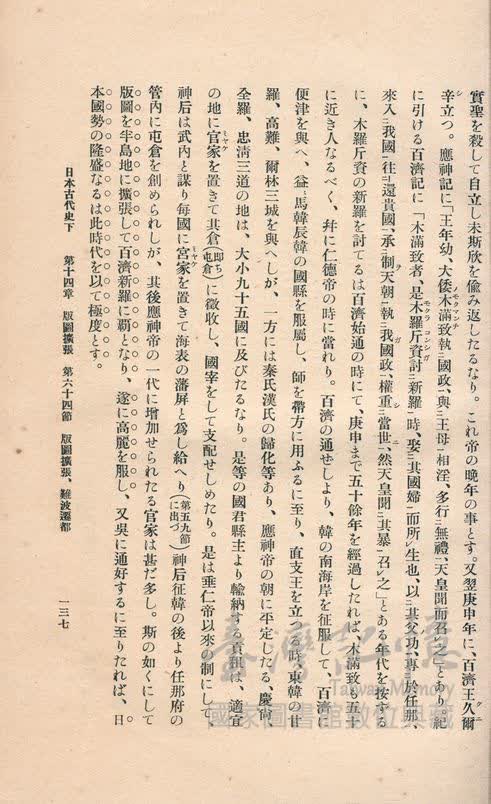 實聖を殺して自立し未斯欣を偸み返したるなり。これ帝の晩年の事とす。又翌庚申年に、百濟王久爾
辛立つ。應神記に「王年幼、大倭木滿致執國政、與王母相淫、多行無禮、天皇聞而召之」とあり。紀
に引ける百濟記に「木滿致者、是木羅斤資討新羅時、娶其國婦而所生也、以其父功、專於任那、
來入我國往還貴國、承制天朝執我國政、權重當世、然天皇聞其暴召之」とある年代を按ずる
に、木羅斤資の新羅を討てるは百濟始通の時にて、庚申まで五十餘年を經過したれば、木滿致も五十
に近き人なるべく、幷に仁德帝の時に當れり。百濟の通せしより、韓の南海岸を征服して、百濟に
便津を與へ、益馬韓辰韓の國縣を服屬し、師を帶方に用ふるに至り、直支王を立つる時、東韓の甘
羅、高難、爾林三城を與へしが、一方には秦氏漢氏の歸化等あり、應神帝の朝に平定したる、慶尙、
全羅、忠淸三道の地は、大小九十五國に及びたるなり。是等の國君縣主より輸納する貢租は、適宜
の地に官家を置きて其倉(即ち屯倉)に徵收し、國宰をして支配せしめたり。是は垂仁帝以來の制にして、
神后は武內と謀り每國に宮家を置きて海表の藩屏と爲し給へり(第五九節に出づ。)神后征韓の後より任那府の
管內に屯倉を創められしが、其後應神帝の一代に增加せられたる官家は甚だ多し。斯の如くにして
版圖を半島地に擴張して百濟新羅に覇となり、遂に高麗を服し、又吳に通好するに至りたれば、日
本國勢の隆盛なるは此時代を以て極度とす。
日本古代史下 第十四章 版圖擴張 第六十四節 版圖擴張、難波遷都
一三七
臺灣記憶
Taiwan Memory
國家圖書館數位典藏